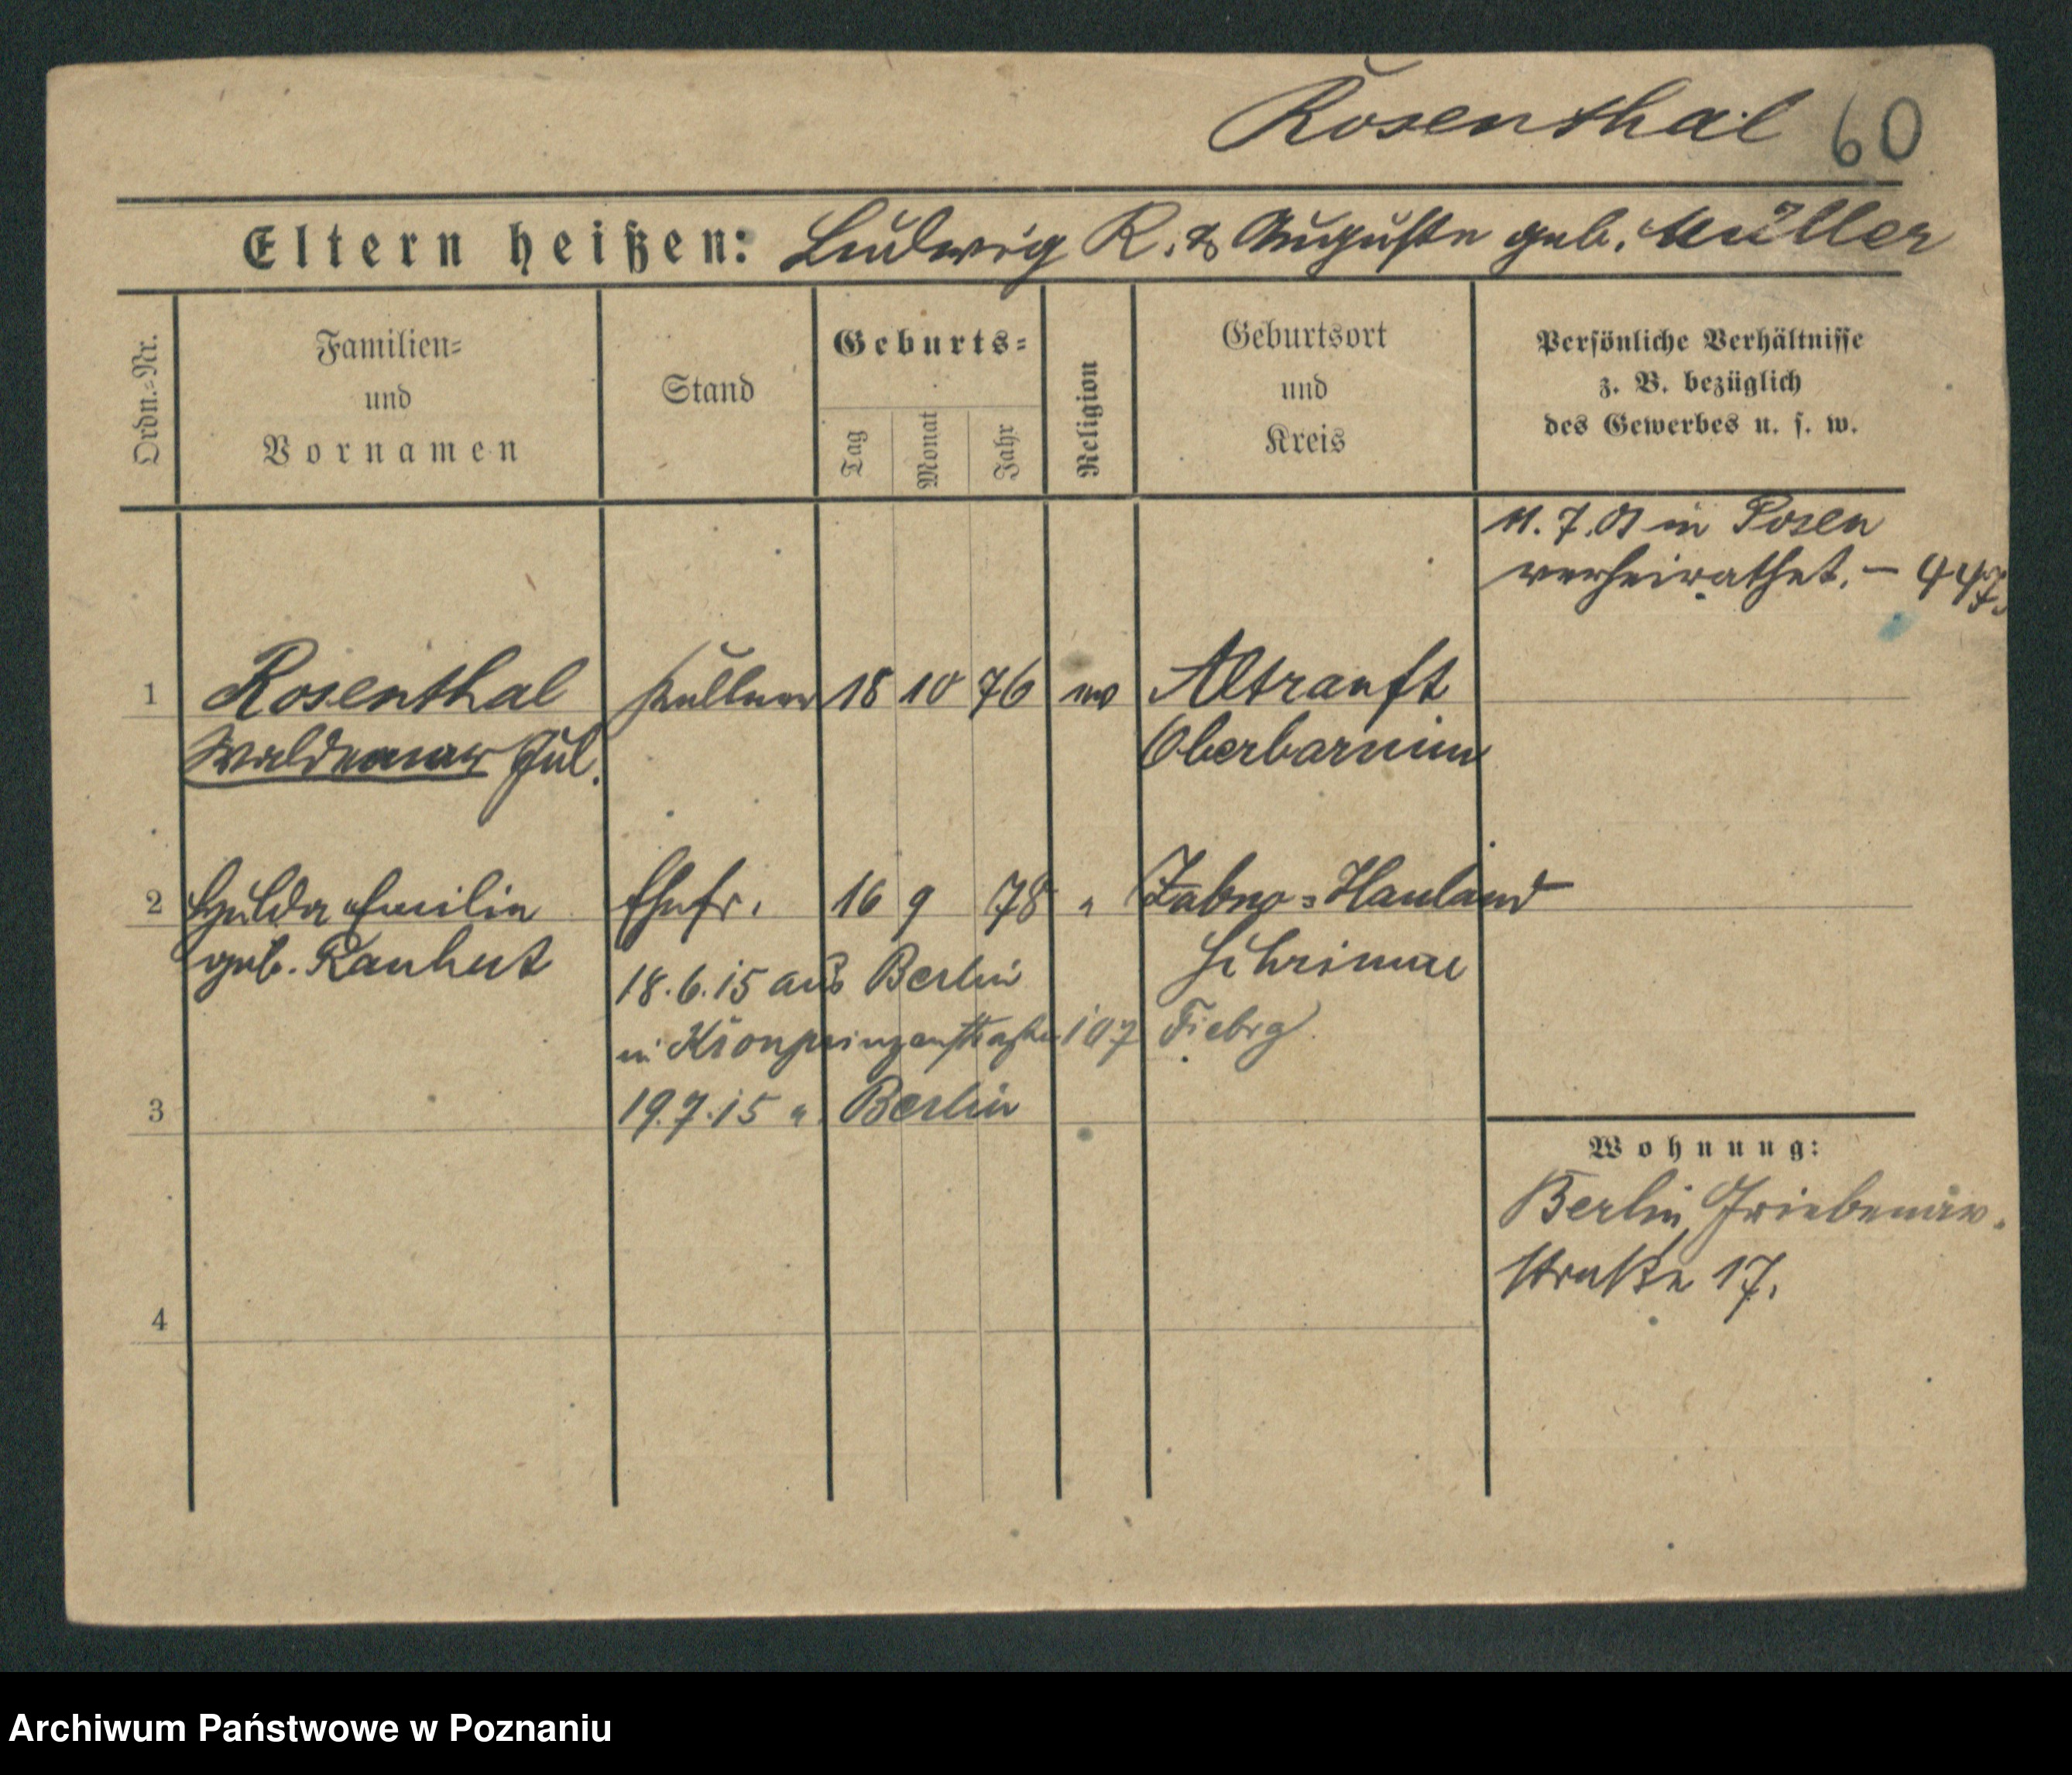 Rosenthal 60
Eltern heißen: Ludwig R. & Auguste geb. Müller
Ordn.=Nr.
Familien=
und
Vornamen
Stand
Geburts=
Tag
Monat
Jahr
Religion
Geburtsort
und
Kreis
Persönliche Verhältnisse
z. B. bezüglich
des Gewerbes u. s. w.
11.7.01 in Posen
verheirathet. – 447.
1 Rosenthal Kellner 18 10 76 ev Altranft
Waldemar Jul. Oberbarnim
2 Hulda Emilie Ehefr. 16 9 78 " Zabno=Hauland
geb. Rauhut Schrimm
18.6.15 aus Berlin
in Kronprinzenstraße 107 Fiebig
3 19.7.15 n. Berlin
Wohnung:
Berlin,
straße 17.
4
Archiwum Państwowe w Poznaniu